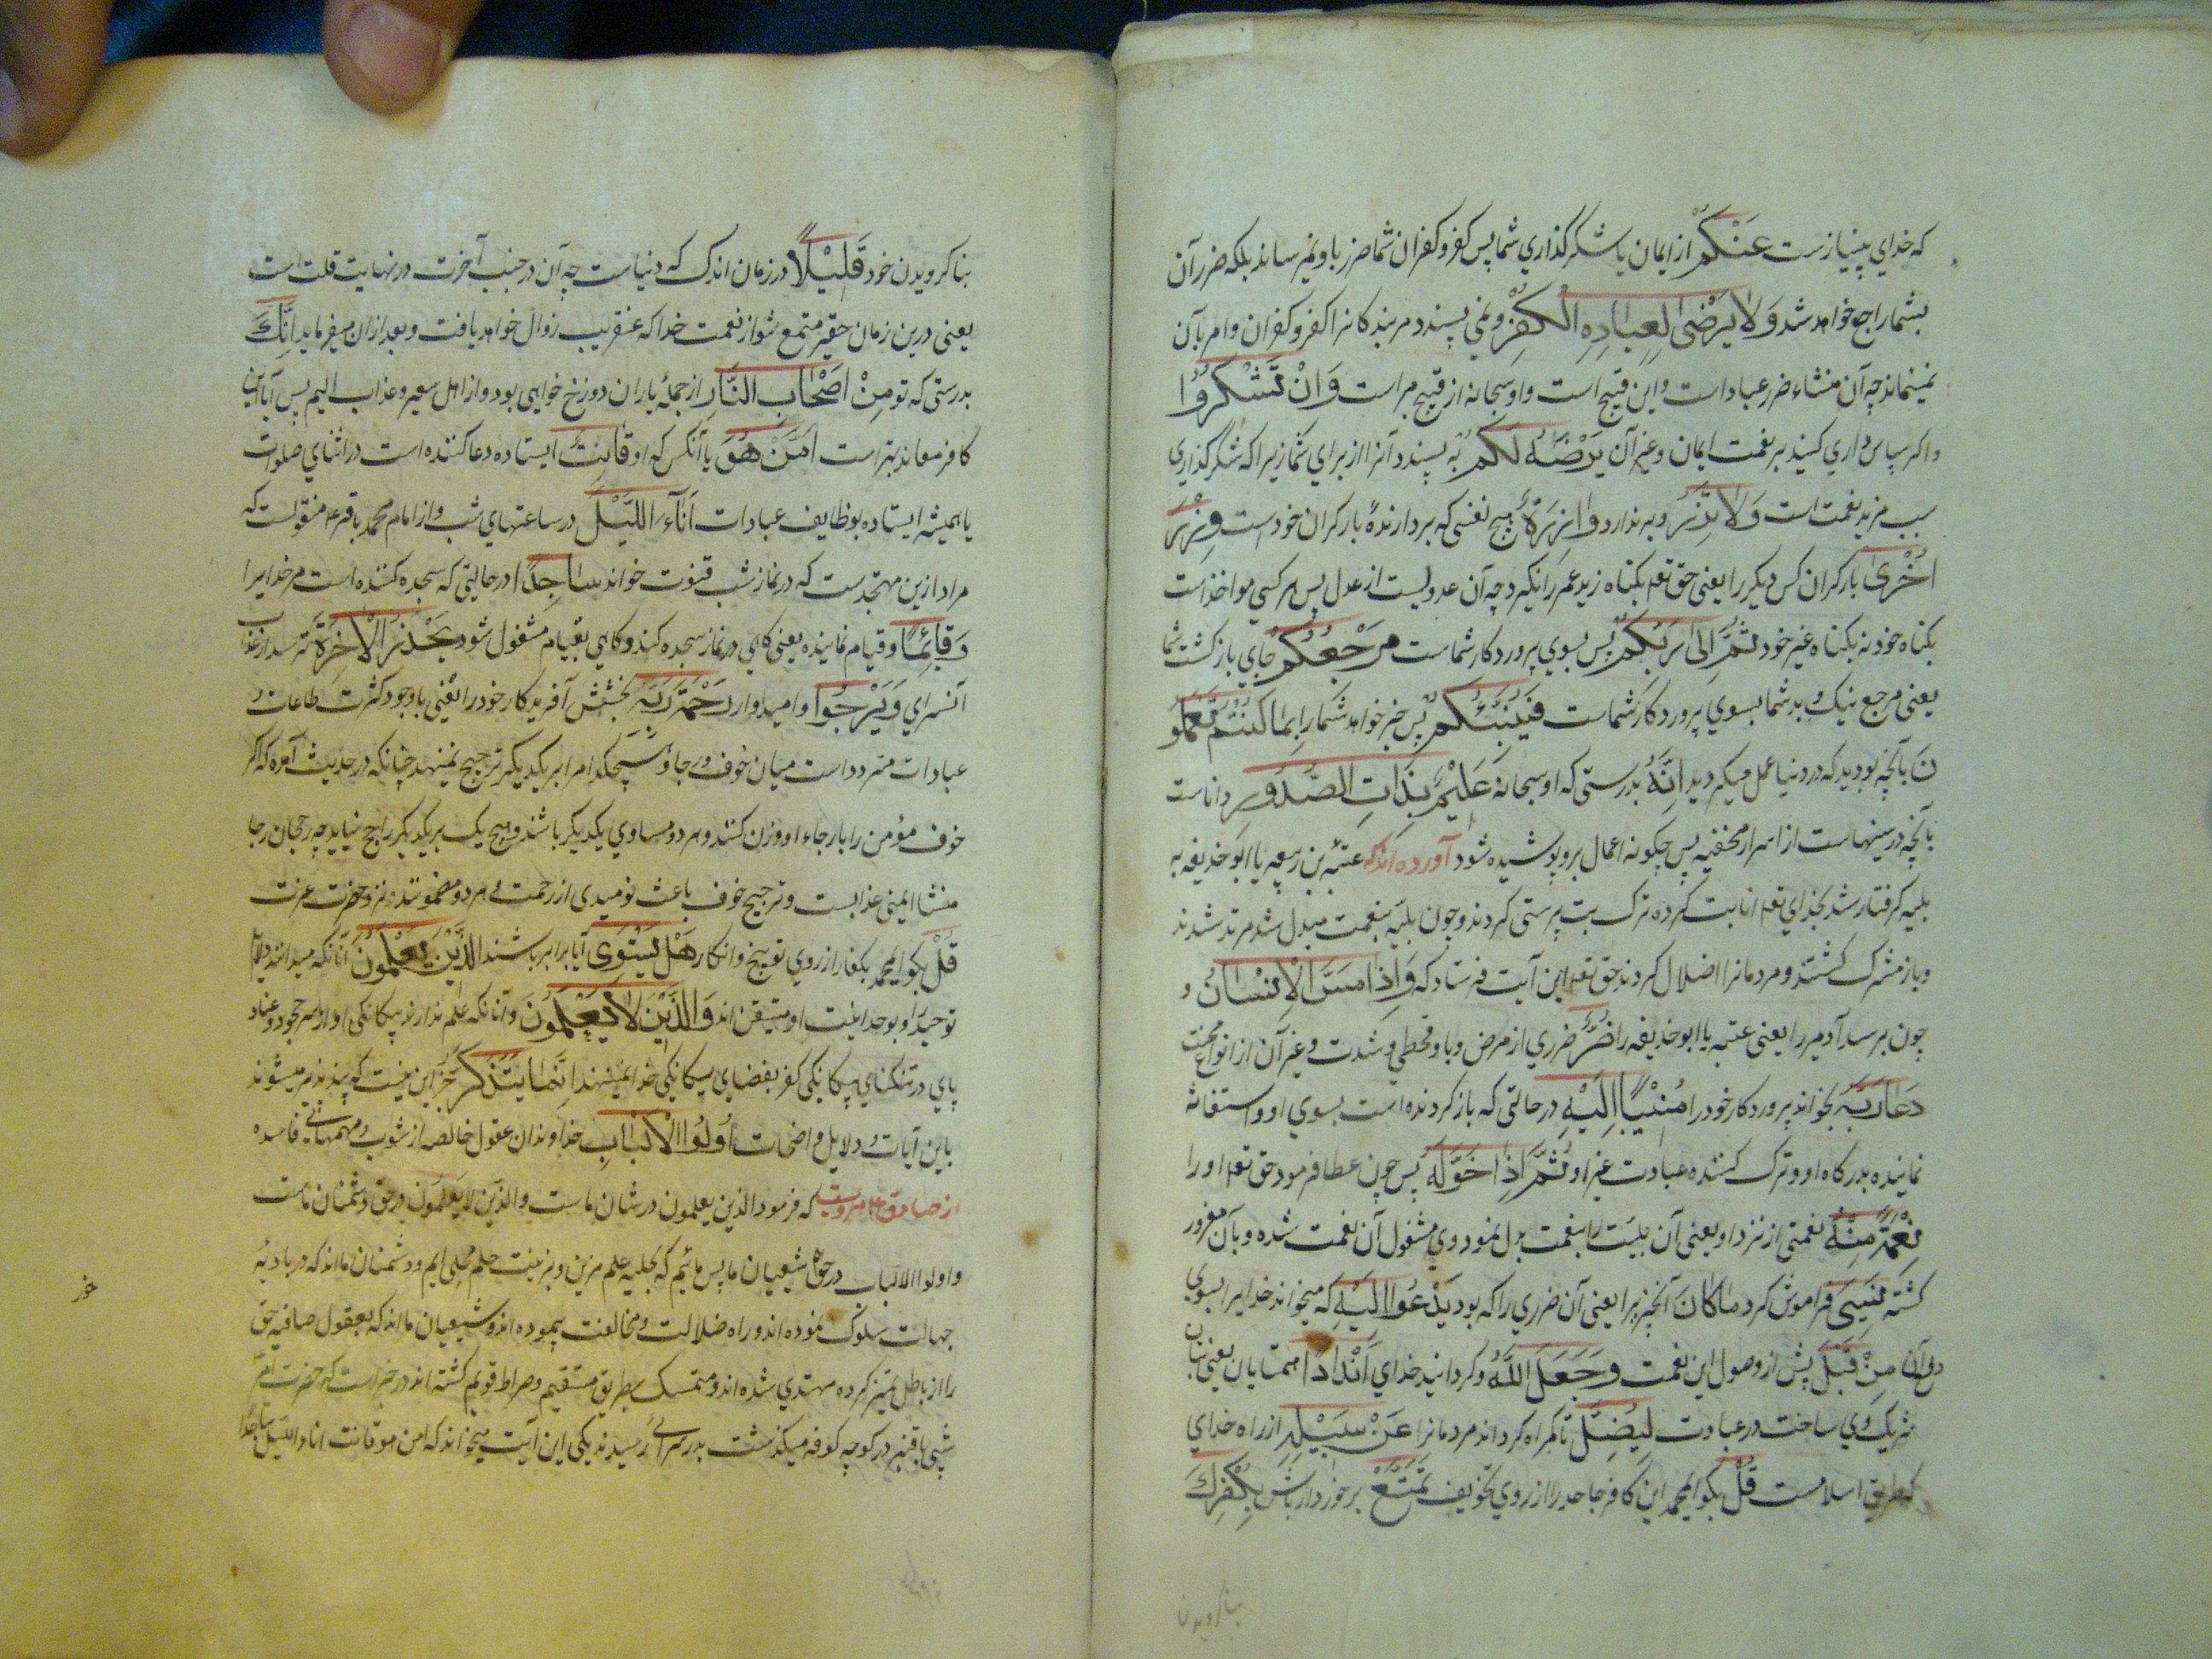 که خدای بی‌نیازست عَنْكُمْ از ایمان یا شکرگذاری شما پس کفر و کفران شما ضرر باو نمیرساند بلکه ضرر آن
بشما راجع خواهد شد وَلَا يَرْضَىٰ لِعِبَادِهِ الْكُفْرَ و نمی پسندد مر بندکانرا کفر و کفران و امر بآن
نمینماید چه آن منشاء ضرر عباد است و این قبیح است و او سبحانه از قبیح مبراست وَاِنْ تَشْكُرُوا
و اکر سپاس داری کنید بر نعمت ایمان و غیر آن يَرْضَهُ لَكُمْ به پسندد آنرا از برای شما زیرا که شکرگذاری
سبب مزید نعمت است وَلَا تَزِرُ و برندارد وَازِرَةٌ هیچ نفسی که بردارندهٔ بار کران خودست وِزْرَ
اُخْرَىٰ بار کران کس دیکر را یعنی حق تعه بکناه زید عمر را نکیرد چه آن عدولیست از عدل پس هر کسی مواخذاست
بکناه خود نه بکناه غیر خود ثُمَّ اِلَىٰ رَبِّكُمْ پس بسوی پروردکار شماست مَرْجِعُكُمْ جای بازکشت شما
یعنی مرجع نیک و بد شما بسوی پروردکار شماست فَيُنَبِّئُكُمْ پس خبر خواهد شما را بِمَا كُنْتُمْ تَعْمَلُو
نَ بآنچه بودید که در دنیا عمل میکردید اِنَّهُ بدرستی که او سبحانه عَلِيْمٌ بِذَاتِ الصُّدُورِ داناست
بآنچه در سینهاست از اسرار مخفیه پس چکونه اعمال برو پوشیده شود آورده اند که عتبه بن ربیعه یا ابو حذیفه به
بلیه کرفتار شد بخدای تعه انابت کرده ترک بت پرستی کردند و چون بلیه بنعمت مبدل شد مرتد شدند
و باز مشرک کشتند و مردمانرا اضلال کردند حق تعه این آیت فرستاد که وَاِذَا مَسَّ الْاِنْسَانُ و
چون برسد آدمیرا یعنی عتبه یا ابو حذیفه را ضُرٌّ ضرری از مرض و با و قحطی و شدت و غیر آن از انواع محنت
دَعَا رَبَّهُ بخواند پروردکار خود را مُنِيْبًا اِلَيْهِ در حالتی که بازکردنده است بسوی او و استغاثه
نماینده بدرکاه او و ترک کننده عبادت غیر او ثُمَّ اِذَا خَوَّلَهُ پس چون عطا فرمود حق تعه او را
نِعْمَةً مِنْهُ نعمتی از نزد او یعنی آن بلیت را بنعمت بدل نمود وی مشغول آن نعمت شده و بآن مغرور
کشته نَسِيَ فراموش کرد مَا كَانَ آنچیزیرا یعنی آن ضرری را که بود يَدْعُوا اِلَيْهِ که میخواند خدایرا بسوی
دفع آن مِنْ قَبْلُ پیش از وصول این نعمت وَجَعَلَ اللّٰهُ و کردانید خدای اَنْدَادًا همتایان یعنی بتان
شریک وی ساخت در عبادت لِيُضِلَّ تا کمراه کرداند مردمانرا عَنْ سَبِيْلِهِ از راه خدای
که طریق اسلامست قُلْ بکو ای محمد این کافر جاحد را از روی تخویف تَمَتَّعْ برخوردار باش بِكُفْرِكَ
بنا کرویدن
بنا کرویدن خود قَلِيْلًا در زمان اندک که دنیاست چه آن در جنب آخرت در نهایت قلت است
یعنی درین زمان حقیر متمتع شو از نعمت خدا که عنقریب زوال خواهد یافت و بعد از ان میفرماید اِنَّكَ
بدرستی که تو مِنْ اَصْحَابِ النَّارِ از جملهٔ یاران دوزخ خواهی بود و از اهل سعیر و عذاب الیم پس آیا این
کافر معاند بهتر است اَمَّنْ هُوَ یا آنکس که او قَانِتٌ ایستاده دعا کننده است در اثنای صلوات
یا همیشه ایستاده بوظایف عبادات اٰنَآءَ اللَّيْلِ در ساعتهای شب و از امام محمد باقر ع منقولست که
مراد ازین متهجدست که در نماز شب قنوت خواند سَاجِدًا در حالیتی که سجده کننده است مر خدایرا
وَقَائِمًا و قیام نماینده یعنی کاهی در نماز سجده کند و کاهی بقیام مشغول شود يَحْذَرُ الْاٰخِرَةَ ترسد از عذاب
آنسرای وَيَرْجُوا و امیدوارد رَحْمَةَ رَبِّهِ بخشش آفریدکار خود را یعنی با وجود کثرت طاعات و
عبادات متردد است میان خوف و رجا و هیچکدام را بر یکدیکر ترجیح نمینهد چنانکه در حدیث آمده که اکر
خوف مؤمن را با رجاء او وزن کنند هر دو مساوی یکدیکر باشند و هیچ یک بر یکدیکر راجح نیاید چه رجحان رجا
منشا ایمنی عذابست و ترجیح خوف باعث نومیدی از رحمت هر دو مذمومند نزد حضرت عزت
قُلْ بکو ای محمد بکفار از روی توبیخ و انکار هَلْ يَسْتَوِى آیا برابر باشند الَّذِيْنَ يَعْلَمُونَ آنانکه میدانند دلایل
توحید او بوحدانیت او متیقن اند وَالَّذِيْنَ لَا يَعْلَمُونَ و آنانکه علم ندارند بیکانکی او و از سر جحود و عناد
پای در تنکنای بیکانکی کفر بفضای یکانکی خدا نمینهند اِنَّمَا يَتَذَكَّرُ جز این نیست که پند پذیر میشوند
باین آیات و دلایل واضحات اُولُوا الْاَلْبَابِ خداوندان عقول خالصه از شوب فاسده
از صادق ع مرویست که فرمود الذین یعلمون در شان ماست و الذین لا یعلمون در حق دشمنان ماست
و اولوا الالباب در حق شیعیان ما پس مائیم که بحلیه علم مزین و بزینت حلم محلی ایم و دشمنان ما اند که در بادیهٔ
جهالت سلوک نموده اند و راه ضلالت و مخالفت پیموده اند و شیعیان ما اند که بعقول صافیه حق
را از باطل تمیز کرده مهتدی شده اند و متمسک بطریق مستقیم و صراط قویم کشته اند در خبر است که حضرت امیر
شبی با قنبر در کوچه کوفه میکذشت بدر سرائی رسیدند یکی این آیت میخواند که امن هو قانت اناء اللیل ساجدا